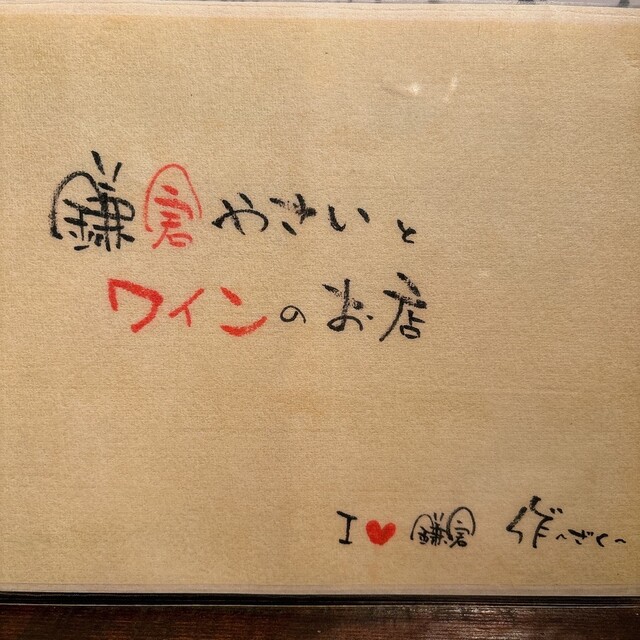 鎌倉やさいと
ワインのお店
I ♥ 鎌倉 作〜ざく〜